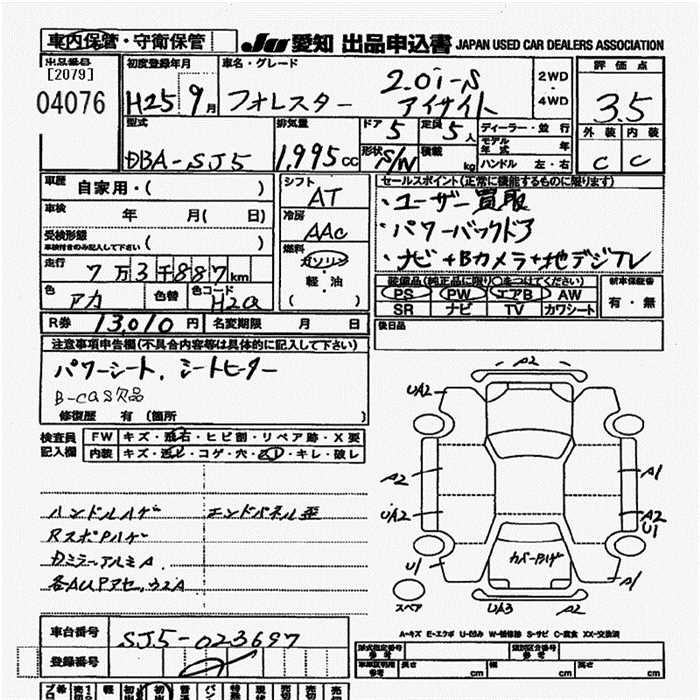 車内保管・守衛保管 JU 愛知 出品申込書 JAPAN USED CAR DEALERS ASSOCIATION
出品番号 [2079] 04076
初度登録年月 H25 9月
車名・グレード フォレスター 2.0i-S アイサイト
2WD・4WD
評価点 3.5
外装 内装 C C
型式 DBA-SJ5
排気量 1,995CC
ドア 5 定員 5人
形状 S/W 積載 kg
ディーラー・並行
モデル年式 年
ハンドル 左・右
車歴 自家用・( )
車検 年 月( 日)
受検形態 車検付きのみ記入して下さい ( )
走行 7万3千887km
色 アカ 色替 色コード H2Q
シフト AT
冷房 AAC
燃料 ガソリン 軽・油 ( )
セールスポイント(正常に機能するものに限ります)
・ユーザー買取
・パワーバックドア
・ナビ+Bカメラ+地デジTV
装備品(純正品に限り○をつけてください)
PS PW エアB AW
SR ナビ TV カワシート
新車保証書 有・無
R券 13,010円 名変期限 月 日
後日品
注意事項申告欄(不具合内容等は具体的に記入して下さい)
パワーシート、シートヒーター
B-CAS欠品
修復歴 有 (箇所 )
検査員記入欄
FW キズ・飛石・ヒビ割・リペア跡・X要
内装 キズ・汚レ・コゲ・穴・スレ・キレ・破レ
ハンドルハゲ エンドパネル歪
RスポPハゲ
カバーハゲ
A2
UA2
A2
UA2
U1
A1
A2
U1
A1
UA3 A2
スペア
A-キズ E-エクボ U-凹み W-補修跡 S-サビ C-腐食 XX-交換済
車台番号 SJ5-023697
登録番号
型式指定番号 参考
類別区分番号 参考
車庫証明用 参考 長さ cm 幅 cm 高さ cm